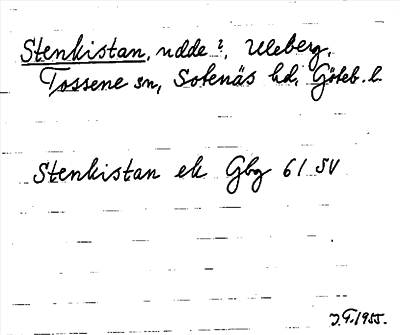 Stenkistan, udde?, Uleberg,
Tossene sn, Sotenäs hd, Göteb. l.
Stenkistan ek Gbg 61 SV
J.F. 1955.